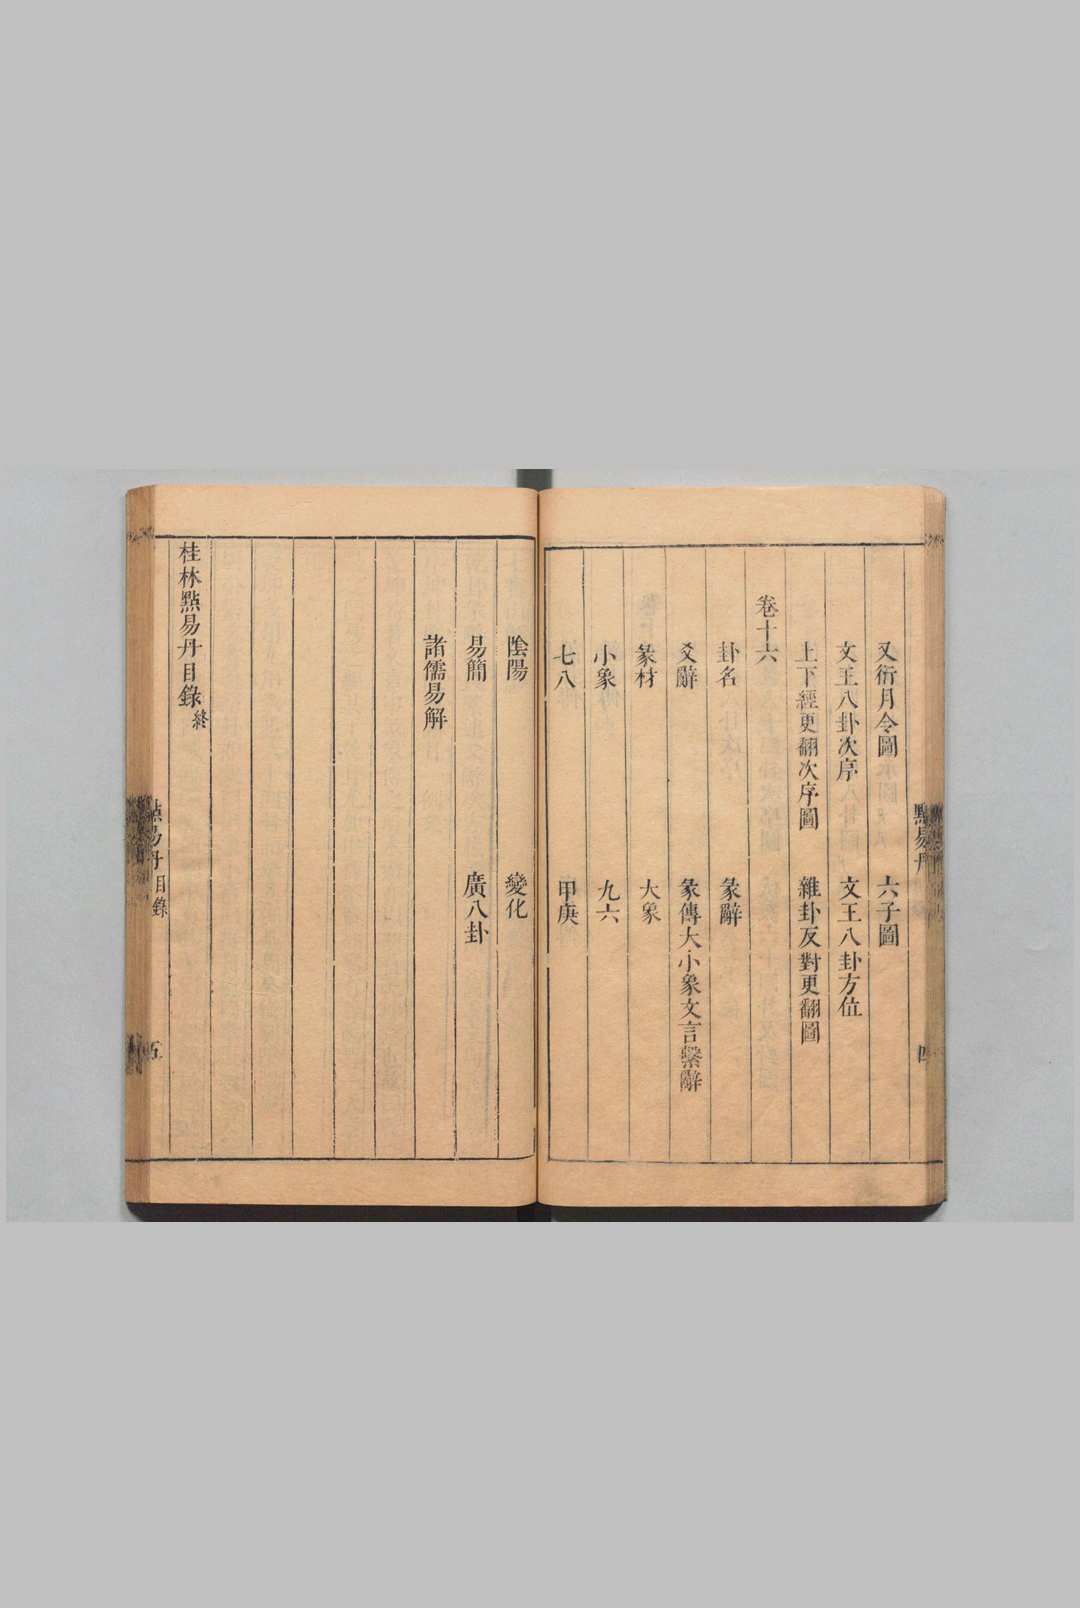 又衍月令圖　六子圖
文王八卦次序　文王八卦方位
上下經更翻次序圖　雜卦反對更翻圖
卷十六
卦名　彖辭
爻辭　彖傳大小象文言繫辭
彖材　大象
小象　九六
七八　甲庚
點易丹
四
陰陽　變化
易簡　廣八卦
諸儒易解
桂林點易丹目錄終
點易丹　目錄
五